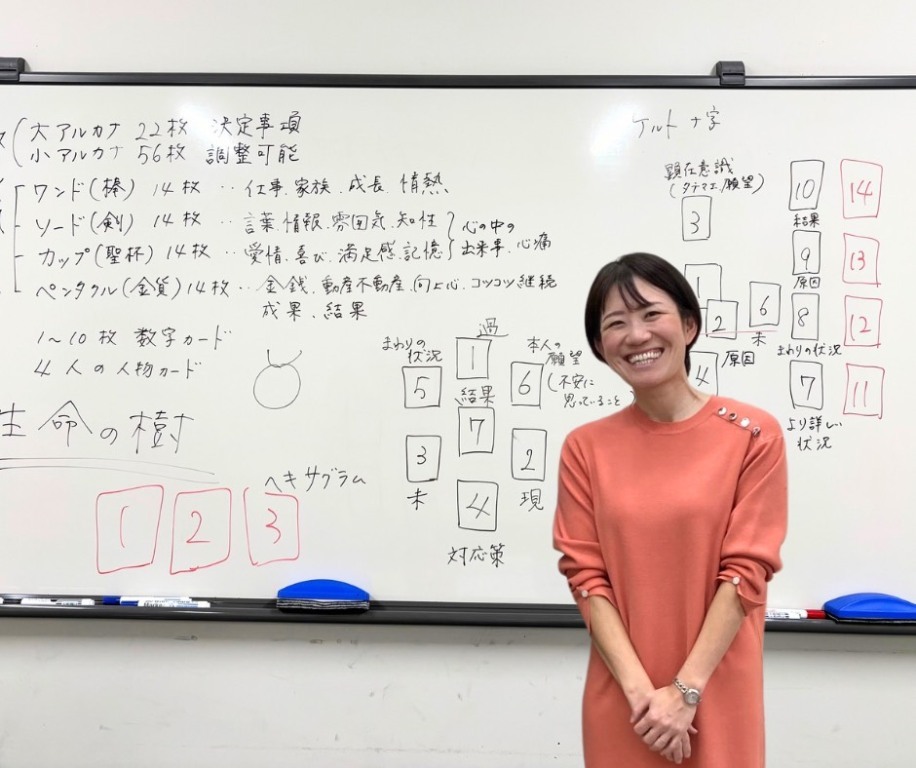 大アルカナ 22枚 決定事項
小アルカナ 56枚 調整可能
ワンド(棒) 14枚 ‥ 仕事、家族、成長、情熱
ソード(剣) 14枚 ‥ 言葉、情報、雰囲気、知性
カップ(聖杯) 14枚 ‥ 愛情、喜び、満足感、記憶
心の中の
出来事、心痛
ペンタクル(金貨) 14枚 ‥ 金銭、動産不動産、向上心、コツコツ継続
成果、結果
1〜10枚 数字カード
4人の人物カード
生命の樹
1 2 3
ヘキサグラム
過
1
まわりの
状況
5
本人の
願望
(不安に
思っていること
6
結果
7
3
未
2
現
4
対応策
ケルト十字
顕在意識
(タテマエ/願望)
3
1
2
6
未
4
原因
10
結果
9
原因
8
まわりの状況
7
より詳しい
状況
14
13
12
11